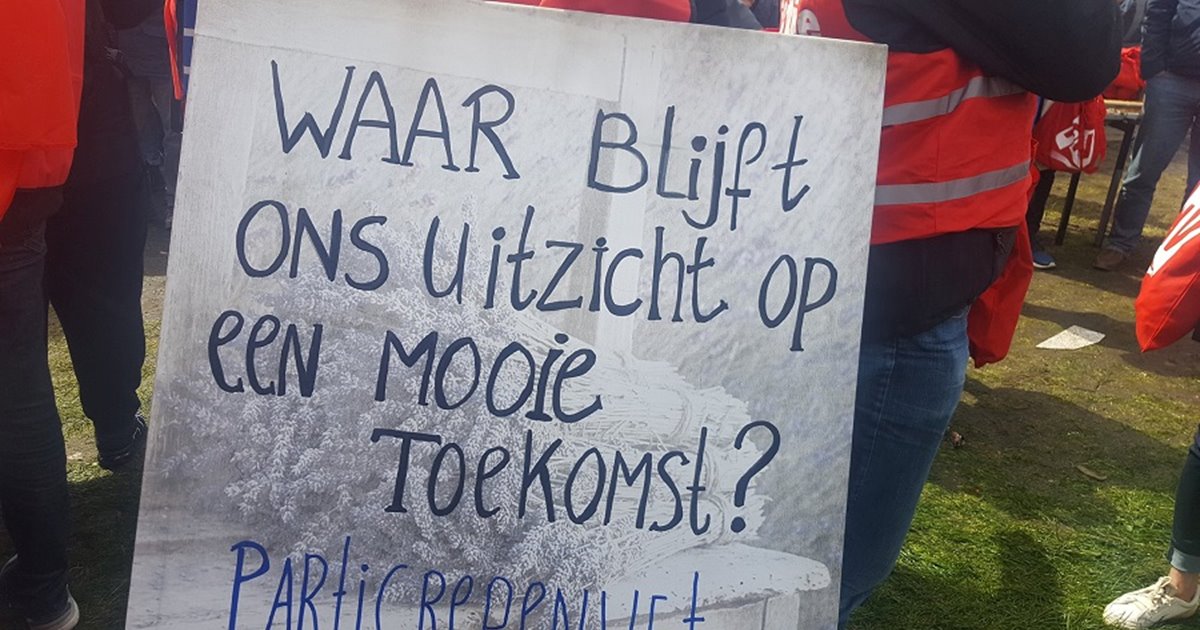 WAAR BLijft
ONS uitzicht OP
EEN MOOiE
TOEKOMSt?